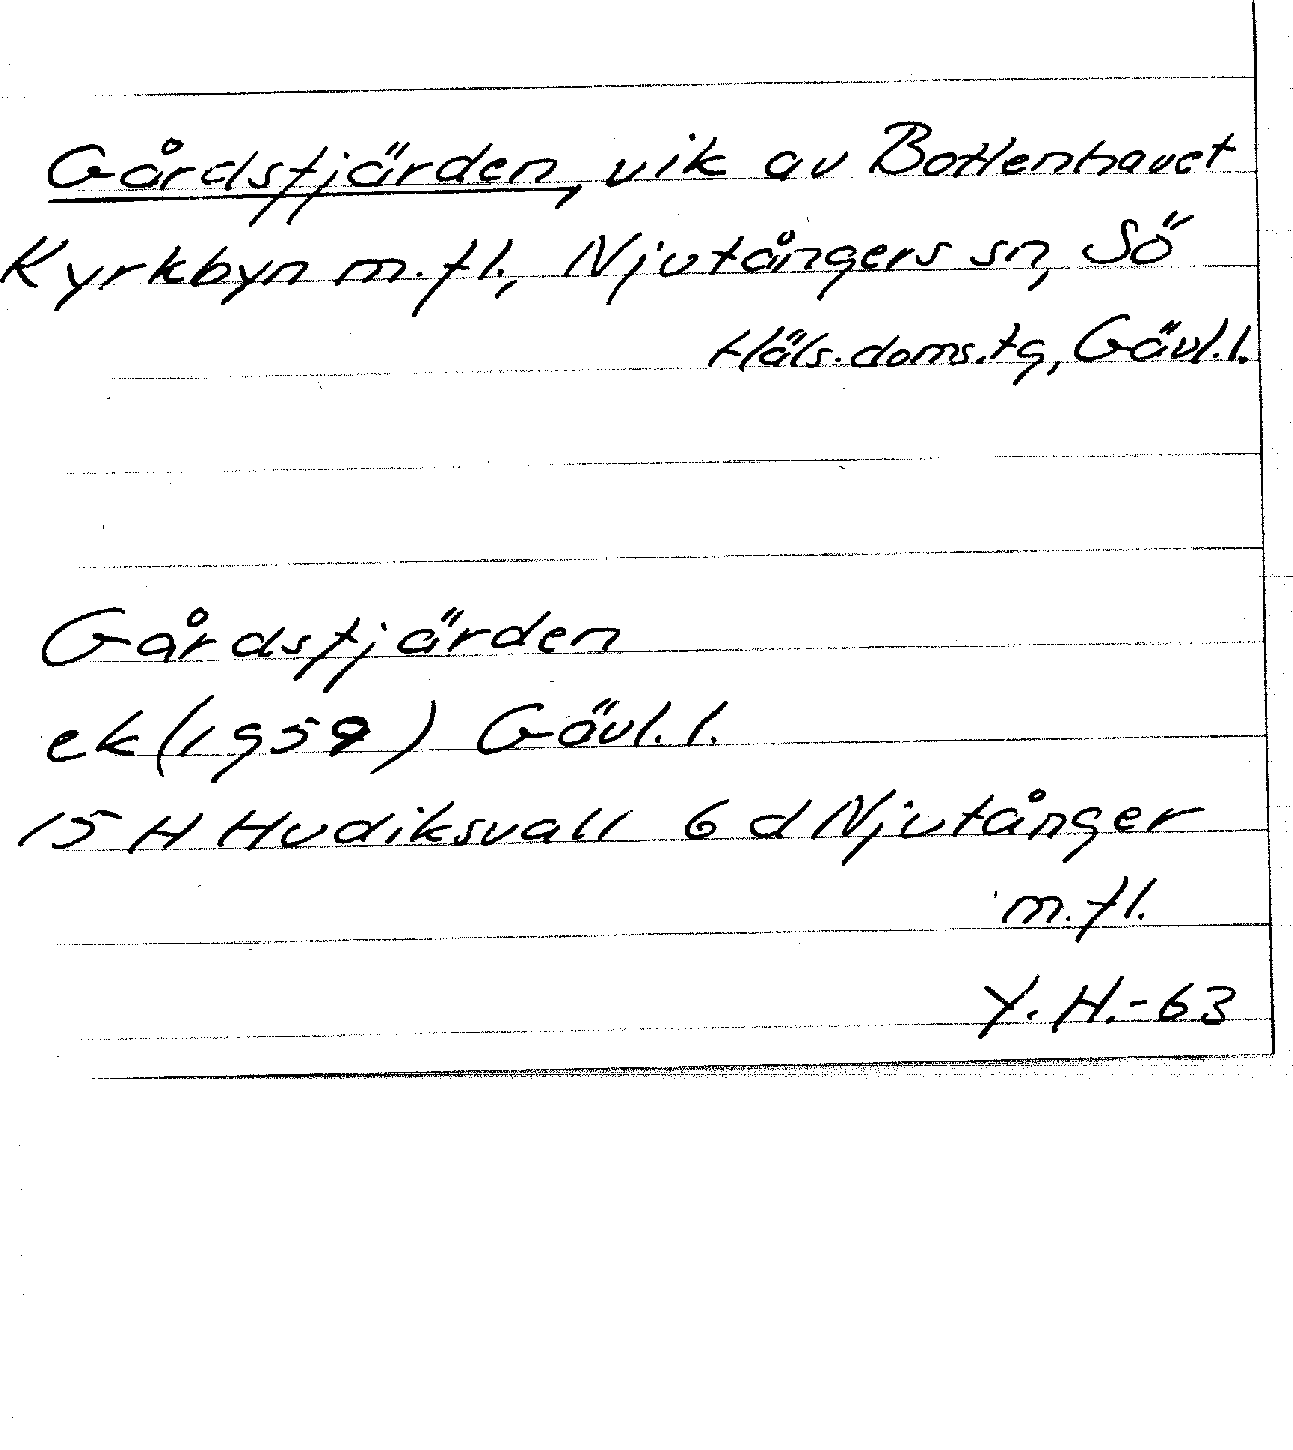 Gårdsfjärden, vik av Bottenhavet
Kyrkbyn m.fl., Njutångers sn, Sö
Häls.doms.tg, Gävl.l.
Gårdsfjärden
ek(1959) Gävl.l.
15 H Hudiksvall 6 d Njutånger
m.fl.
Y.H.-63